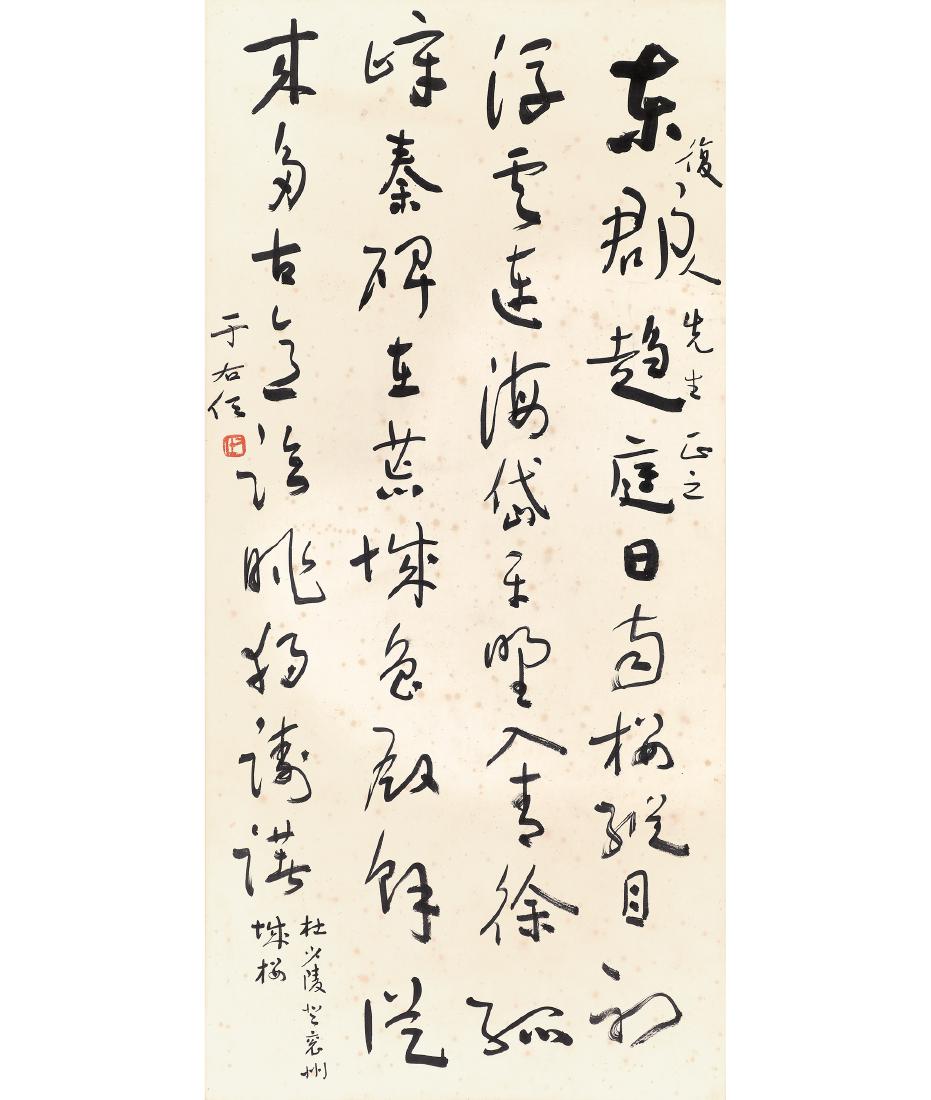 復先生正之
東郡趨庭日南樓縱目初
浮雲連海岱平野入青徐孤
嶂秦碑在荒城魯殿餘從
來多古意臨眺獨躊躇
杜少陵登兗州
城樓
于右任